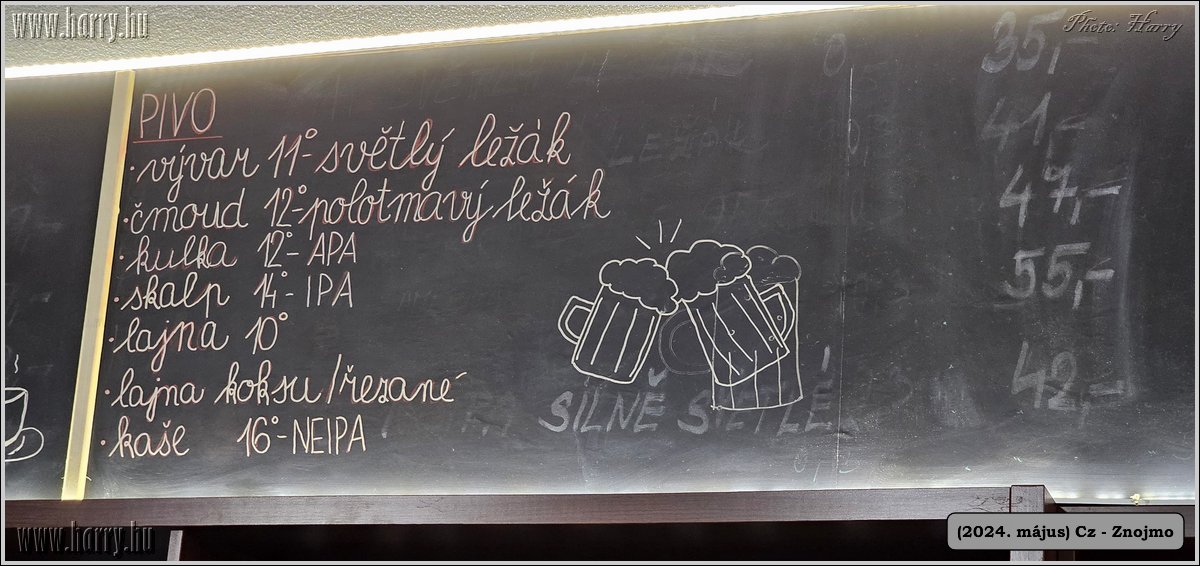 www.harry.hu
Photo: Harry
PIVO
• vývar 11°- světlý ležák
• čmoud 12°- polotmavý ležák
• kulka 12°- APA
• skalp 14°- IPA
• lajna 10°
• lajna koksu/řezané
• kaše 16°- NEIPA
35,-
41,-
47,-
55,-
42,-
LEŽÁK
SILNĚ SVĚTLÉ
www.harry.hu
(2024. május) Cz - Znojmo